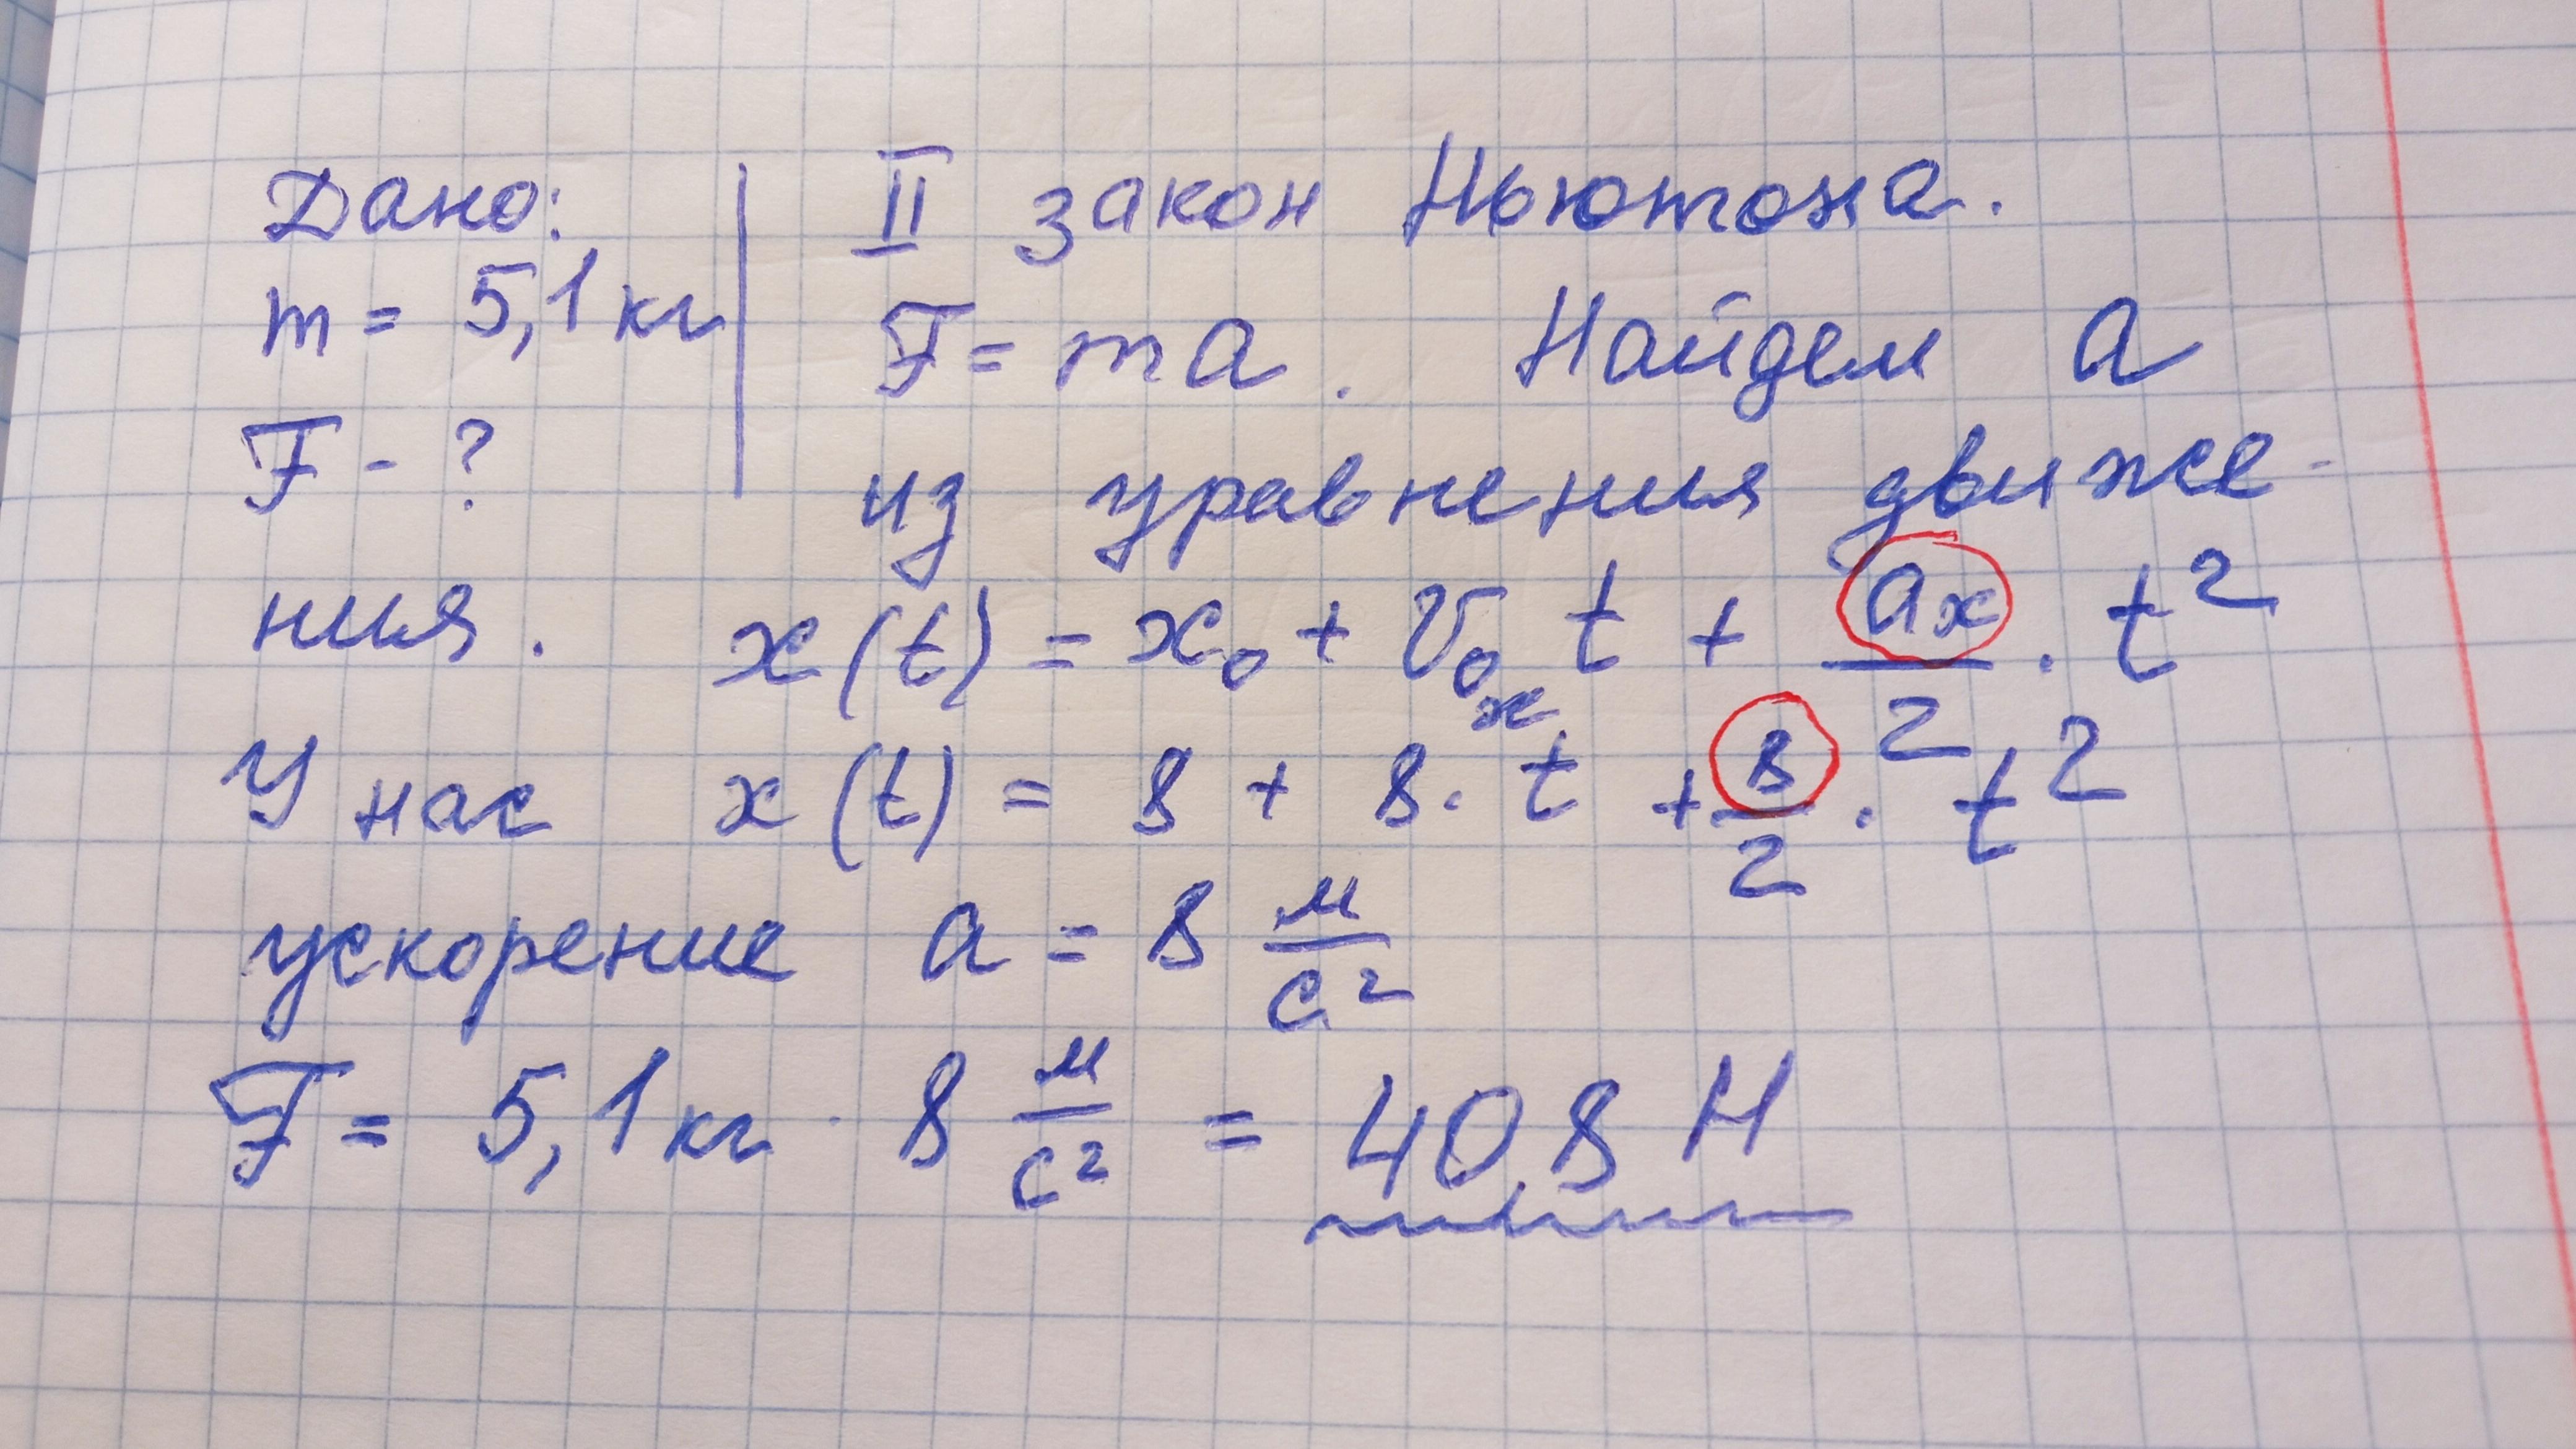 Дано: | II закон Ньютона.
m = 5,1 кг | F = ma. Найдем a
F - ? | из уравнения движе-
ния. x(t) = x₀ + v₀ₓ t + aₓ/2 · t²
У нас x(t) = 8 + 8 · t + 8/2 · t²
ускорение a = 8 м/с²
F = 5,1 кг · 8 м/с² = 40,8 Н